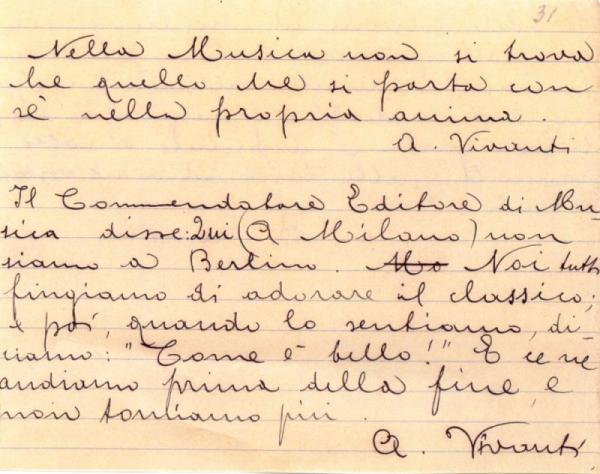 31
Nella Musica non si trova
che quello che si porta con
sè nella propria anima.
A. Vivanti
Il Commendatore Editore di Mu-
sica disse: Qui (A Milano) non
siamo a Berlino. Ma Noi tutti
fingiamo di adorare il classico;
e poi, quando lo sentiamo, di-
ciamo: "Come è bello!" E ce ne
andiamo prima della fine, e
non torniamo più.
A. Vivanti